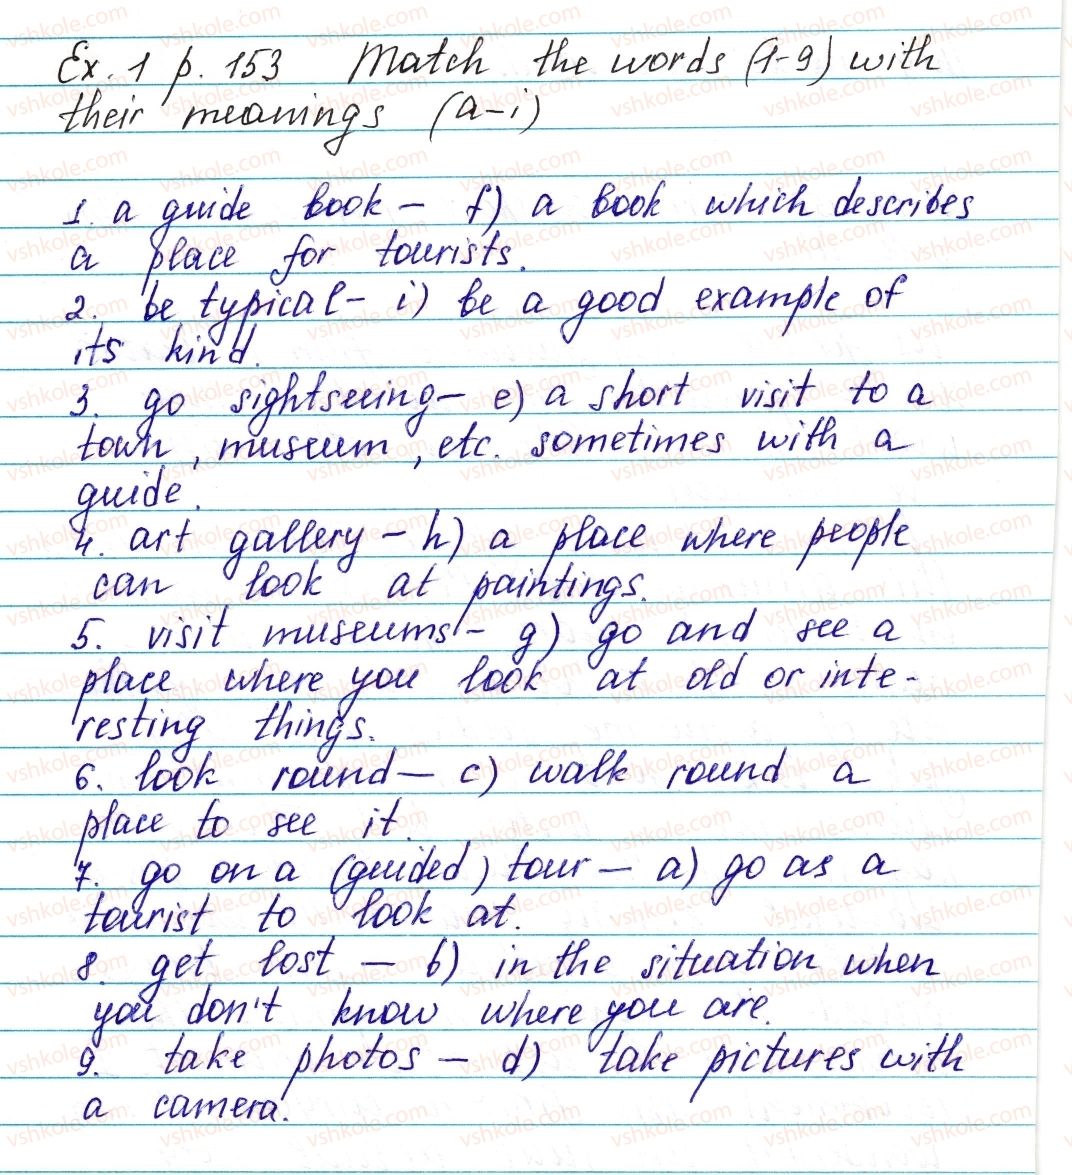 Ex. 1 p. 153 Match the words (1-9) with
their meanings (a-i)
1. a guide book - f) a book which describes
a place for tourists.
2. be typical - i) be a good example of
its kind.
3. go sightseeing - e) a short visit to a
town, museum, etc. sometimes with a
guide.
4. art gallery - h) a place where people
can look at paintings.
5. visit museums - g) go and see a
place where you look at old or inte-
resting things.
6. look round - c) walk round a
place to see it.
7. go on a (guided) tour - a) go as a
tourist to look at.
8. get lost - b) in the situation when
you don't know where you are.
9. take photos - d) take pictures with
a camera.
vshkole.com